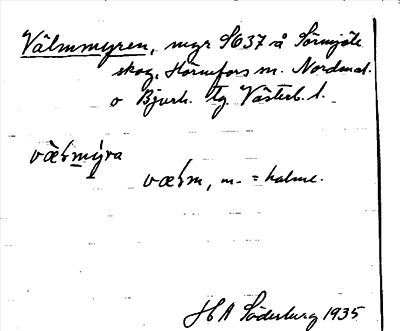 Välmmyren, myr SO 37 å Sörmjöle
skog, Hörnefors sn. Nordmal.
o Bjurh. tg Västerb. l.
væɫmýra
væɫm, m. = halme.
H A Söderberg 1935